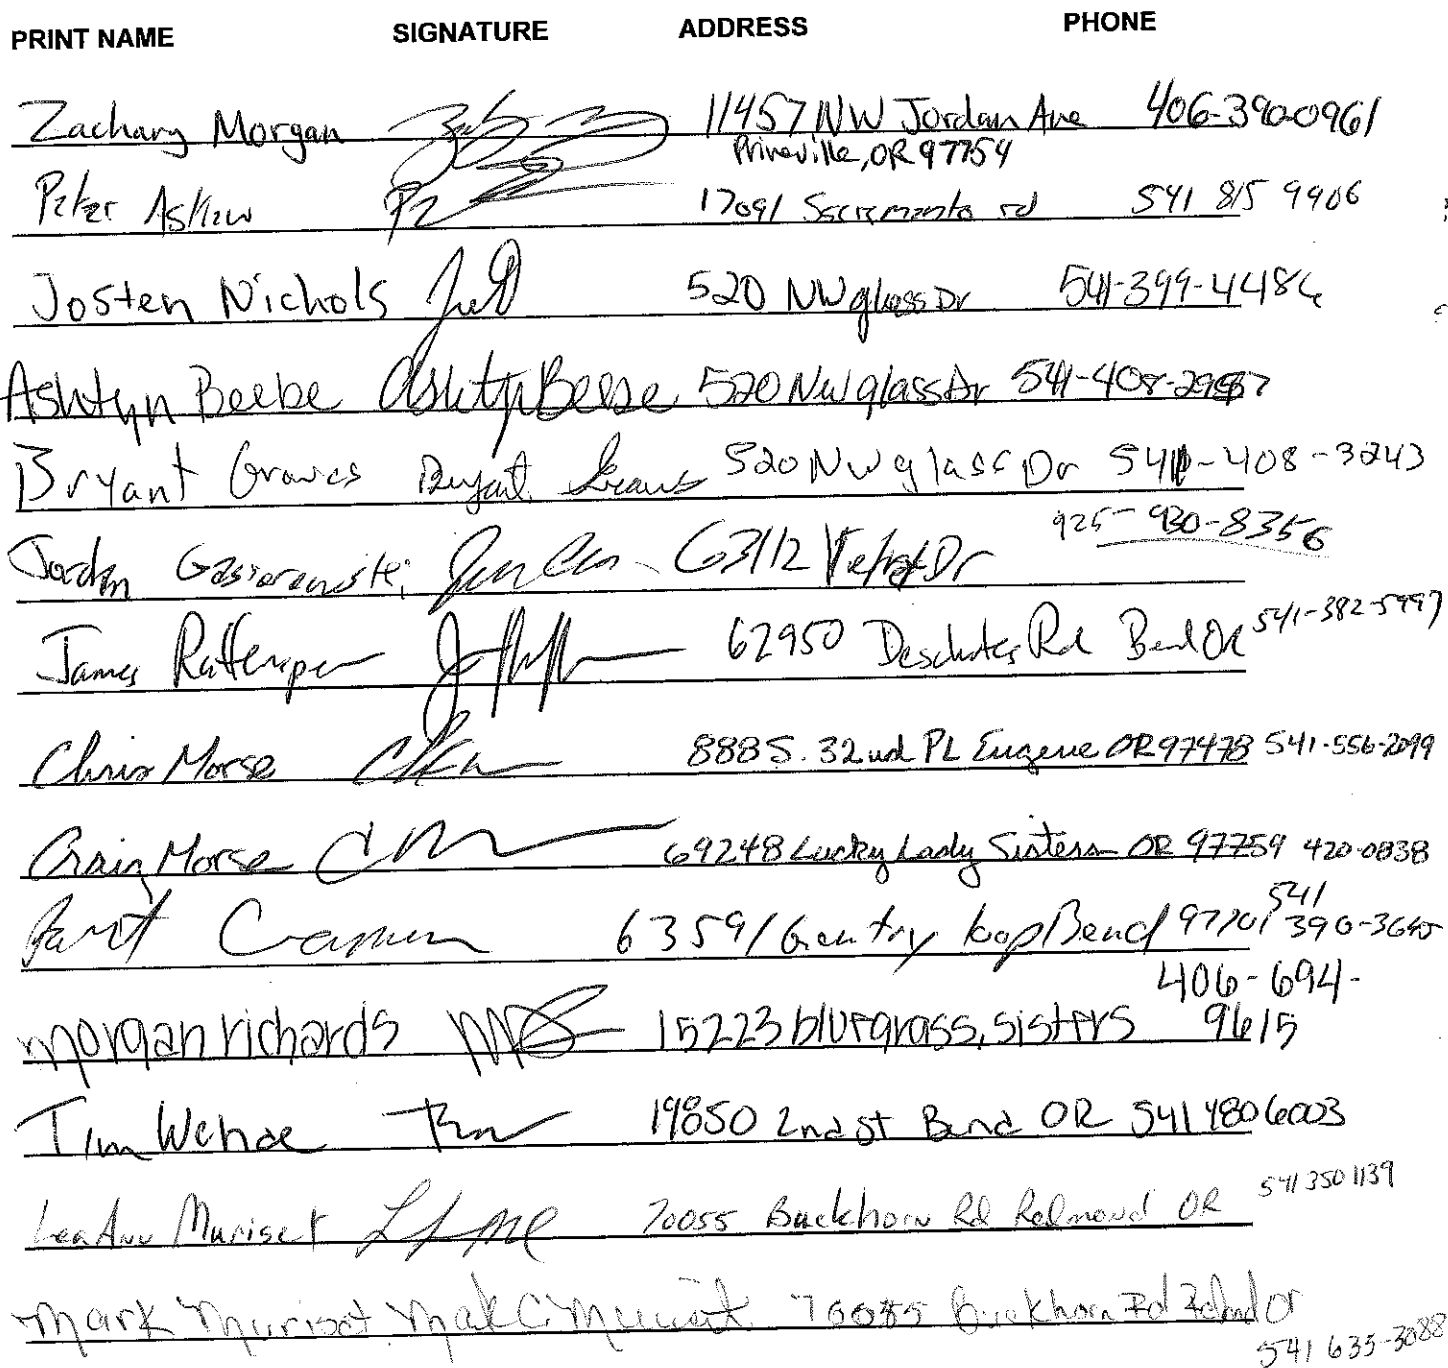 PRINT NAME SIGNATURE ADDRESS PHONE
Zachary Morgan 11457 NW Jordan Ave 406-390-0961
Prineville, OR 97754
Peter Askew 17091 Sacramento rd 541 815 9906
Josten Nichols 520 NW glass Dr 541-399-4486
Ashtyn Beebe Ashtyn Beebe 520 NW glass Dr 541-408-
Bryant Graves Bryant Graves 520 NW glass Dr 541-408-3243
925-930-8356
Jordan 63112 Dr
James 62950 Deschutes Rd Bend OR 541-382-5997
Chris Morse 888 S. 32nd PL Eugene OR 97478 541-556-2099
Craig Morse 69248 Lucky Lady Sisters OR 97759 420-0838
541
63591 Gentry loop Bend 97701
406-694-
morgan richards 15223 bluegrass, sisters 9615
Tim Wehde 19850 2nd st Bend OR 541 480 6003
LeaAnn Muriset 70055 Buckhorn Rd Redmond OR 541 350 1139
Mark Muriset Mark C Muriset Buckhorn Rd Or
541 635-3088